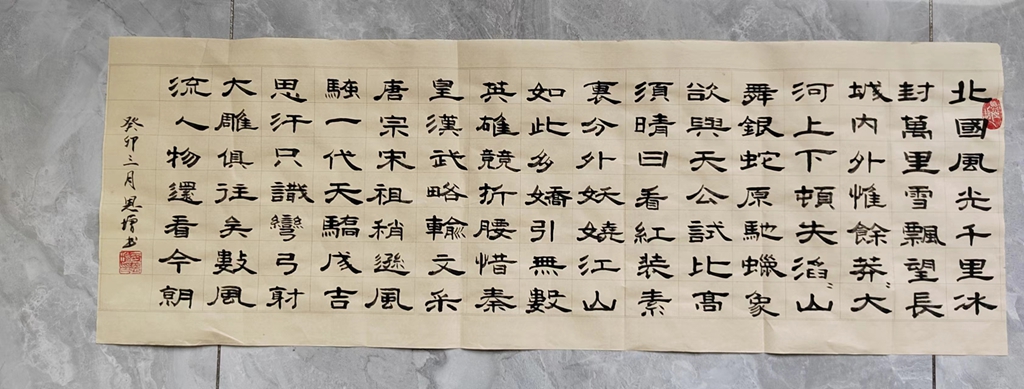 北國風光千里冰
封萬里雪飄望長
城内外惟餘莽〻大
河上下頓失滔〻山
舞銀蛇原馳蠟象
欲與天公試比高
須晴日看紅裝素
裹分外妖嬈江山
如此多嬌引無數
英雄競折腰惜秦
皇漢武略輸文采
唐宗宋祖稍遜風
騷一代天驕成吉
思汗只識彎弓射
大雕俱往矣數風
流人物還看今朝
癸卯三月恩書